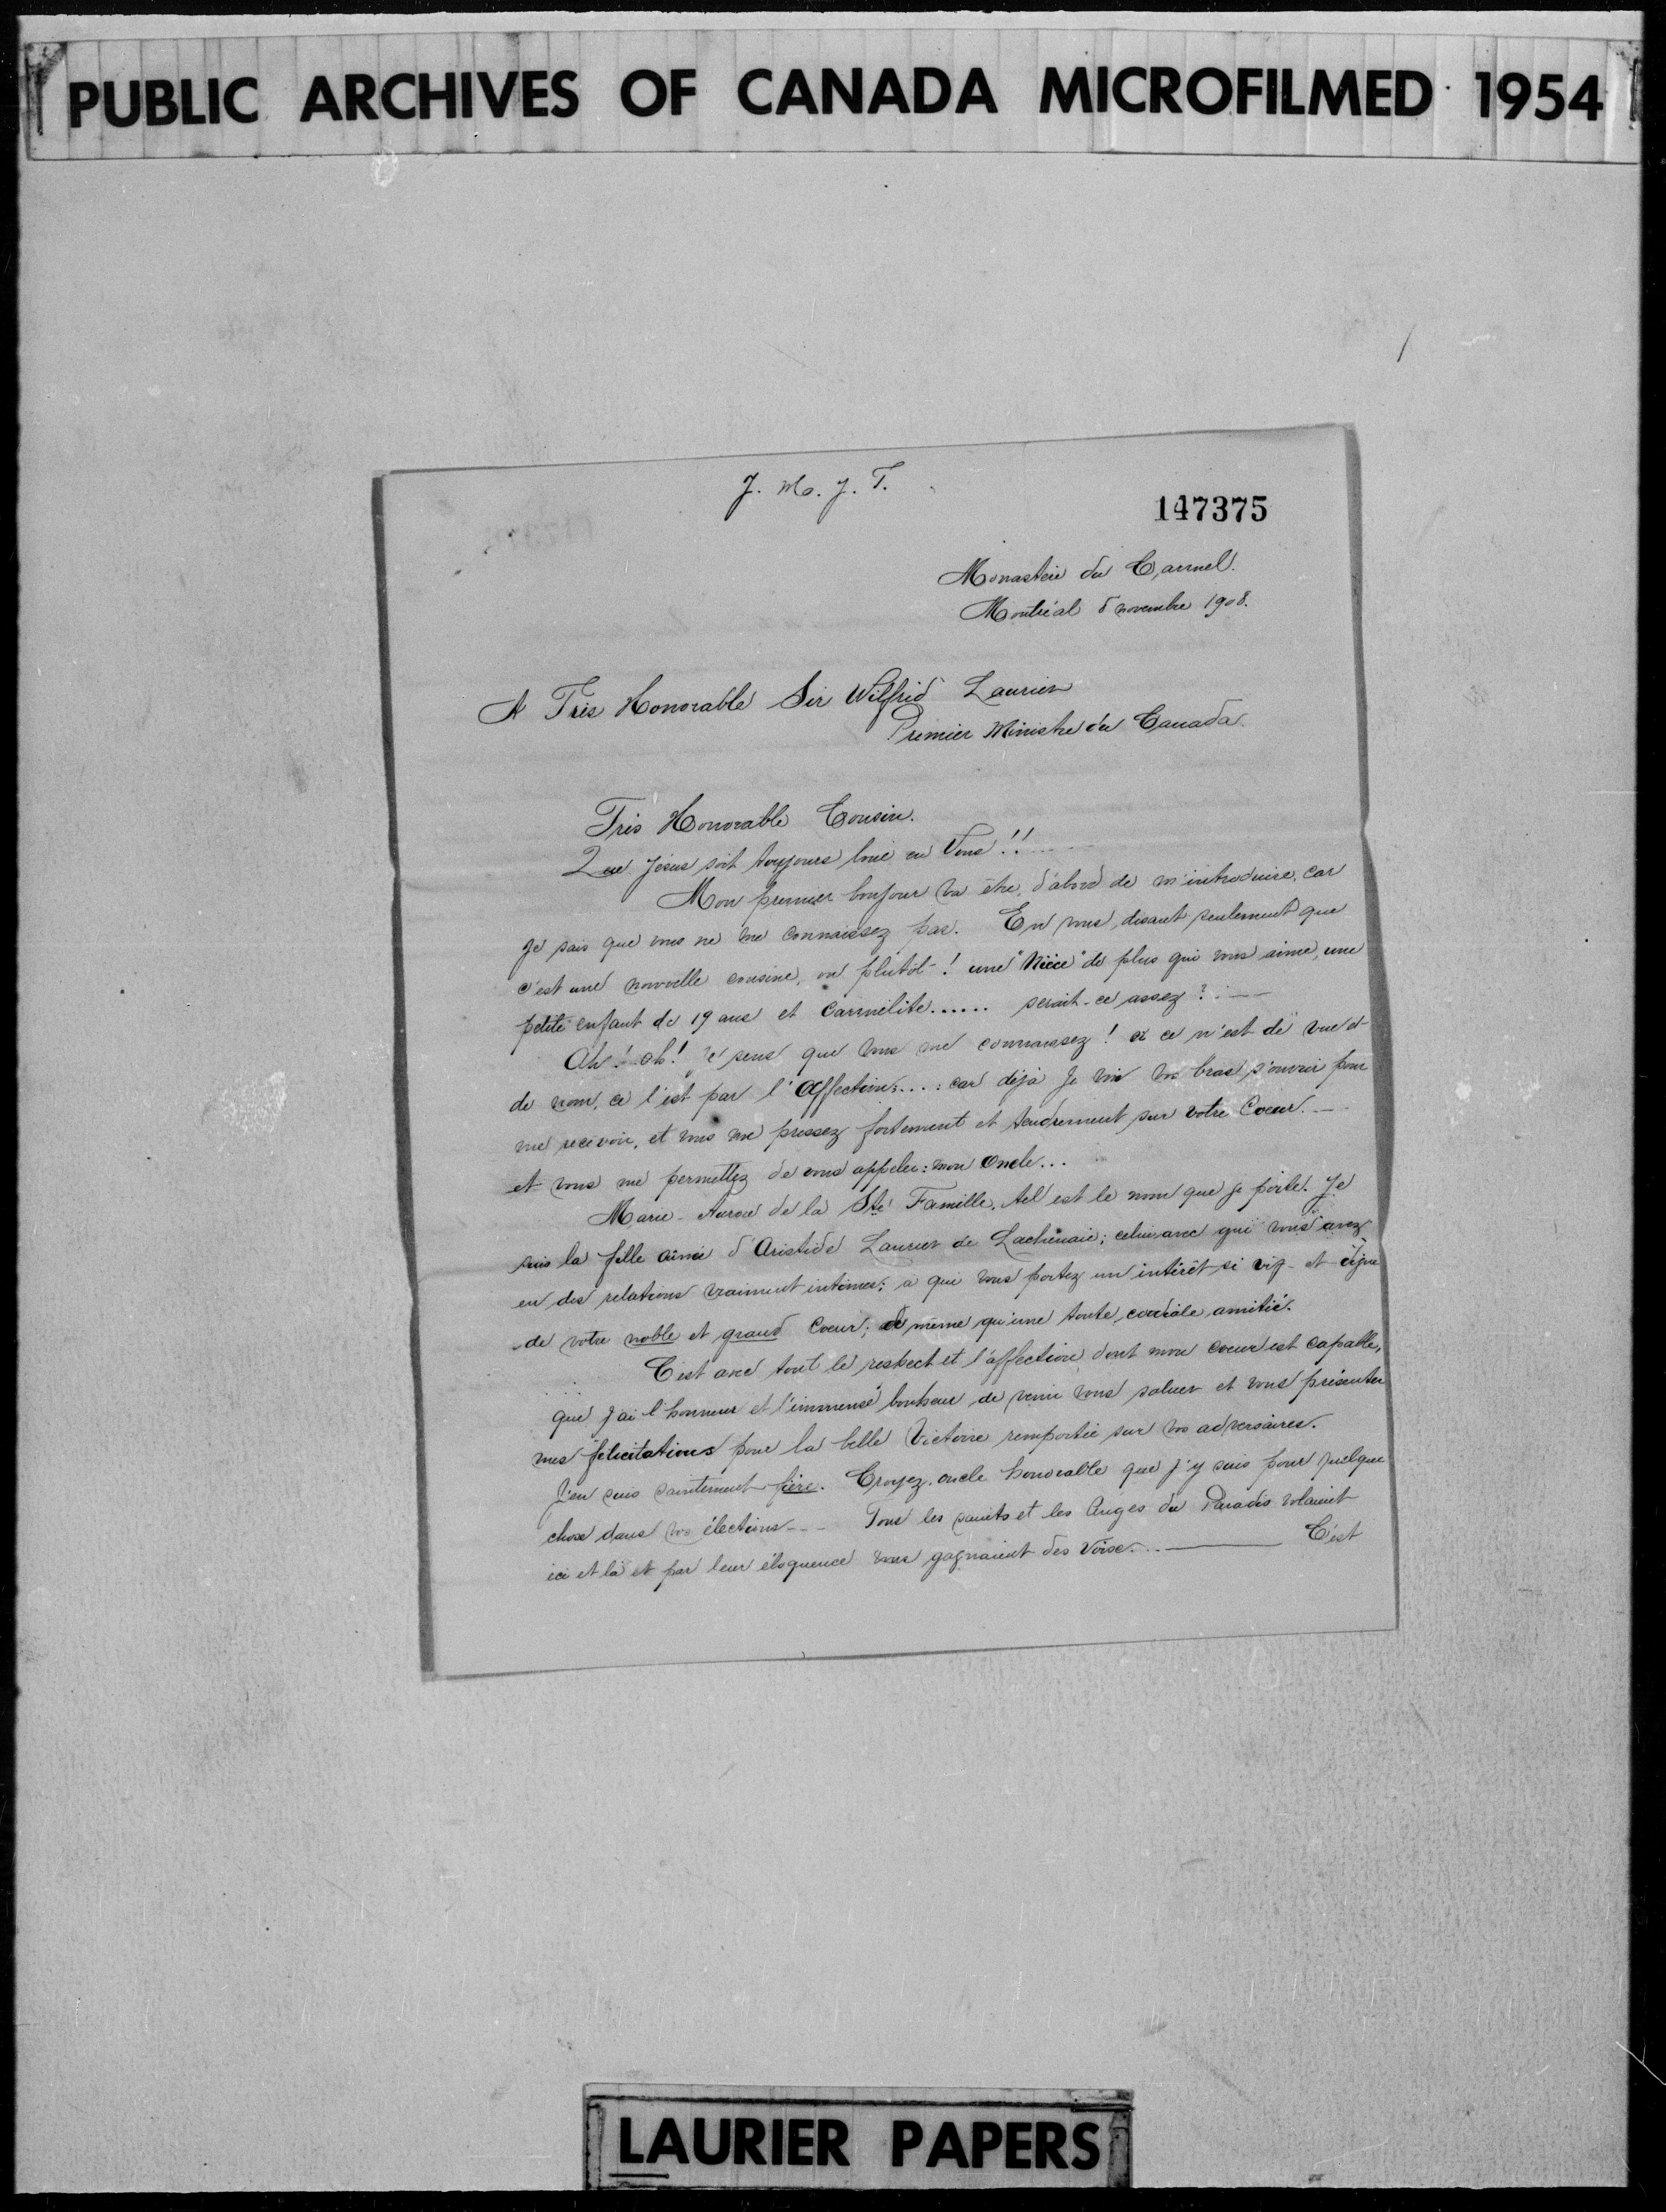 PUBLIC ARCHIVES OF CANADA MICROFILMED 1954
J. M. J. T.
147375
Monastère du Carmel.
Montréal 5 novembre 1908.
A Très Honorable Sir Wilfrid Laurier
Premier Ministre du Canada.
Très Honorable Cousin.
Que Jésus soit toujours loué en Vous!!....
Mon premier bonjour va être, d'abord de m'introduire, car
je sais que vous ne me connaissez pas. En vous disant seulement que
c'est une nouvelle cousine, ou plutôt! une "Nièce" de plus qui vous aime, une
petite enfant de 19 ans et Carmélite...... serait-ce assez?
Ah! oh! je sens que vous me connaissez! si ce n'est de vue et
de nom, ce l'est par l'Affection.... car déjà je vois vos bras s'ouvrir pour
me recevoir, et vous me pressez fortement et tendrement sur votre Coeur.—
et vous me permettez de vous appeler: mon Oncle...
Marie-Aurore de la Ste Famille, tel est le nom que je porte. Je
suis la fille aînée d'Aristide Laurier de Lachenaie; celui avec qui vous avez
eu des relations vraiment intimes; à qui vous portez un intérêt si vif et digne
de votre noble et grand Coeur; de même qu'une toute cordiale amitié.
C'est avec tout le respect et l'affection dont mon coeur est capable,
que j'ai l'honneur et l'immense bonheur de venir vous saluer et vous présenter
mes félicitations pour la belle Victoire remportée sur vos adversaires.
J'en suis saintement fière. Croyez, oncle honorable que j'y suis pour quelque
chose dans vos élections--- Tous les saints et les Anges du Paradis volaient
ici et là et par leur éloquence vous gagnaient des Voix...— C'est
LAURIER PAPERS